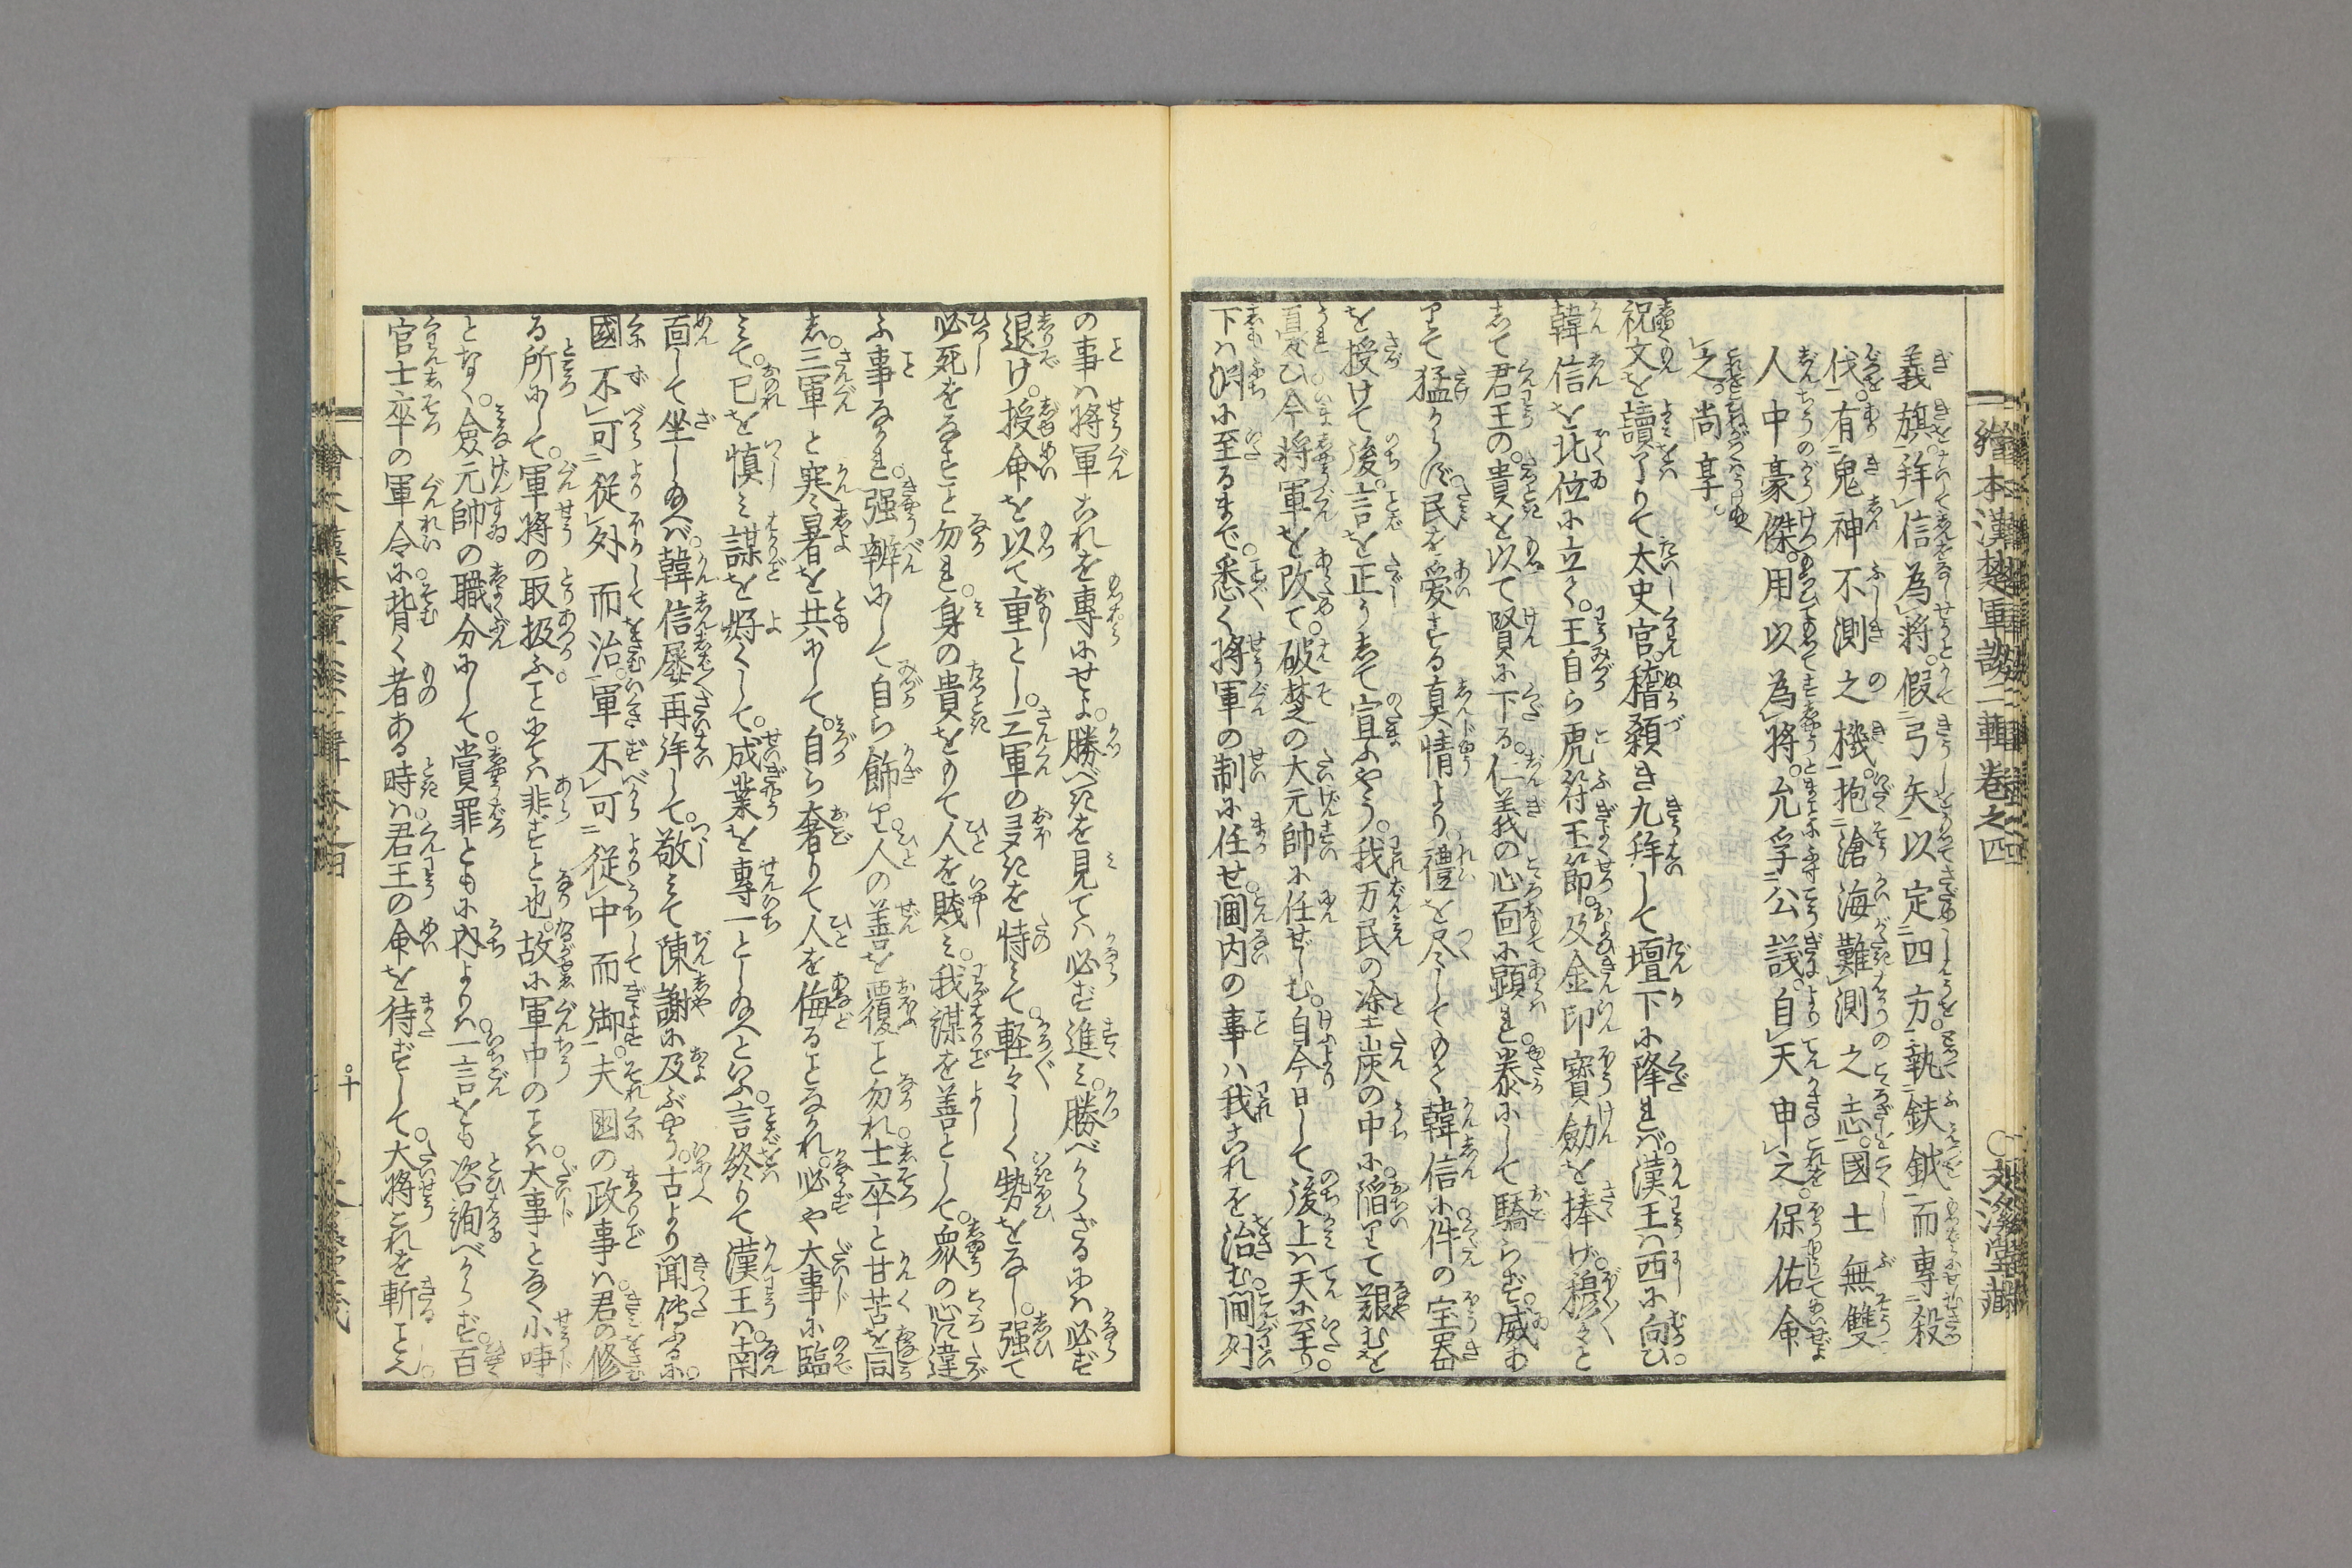 繪本漢楚軍談二輯卷之四
義旗拜信為將。假弓矢以定四方。執鈇鉞而專殺
伐。有鬼神不測之機。抱滄海難測之志。國士無雙
人中豪傑。用以為將。允孚公議。自天申之。保佑命
之尚享。
祝文を讀了りて太史官。稽顙き九拜して壇下に降れバ。漢王ハ西に向ひ。
韓信を北位に立く。王自ら虎符玉節。及金印寳劔を捧げ。穆々と
して君王の。貴を以て賢に下る。仁義の心面に顕れ。泰にして驕らず。威あ
りて猛からず。民を愛する真情より。禮を尽してのく韓信に件の宝器
を授けて後。言を正うして宣ふやう。我万民の塗炭の中に陥りて艱むを
憂ひ今将軍を改て。破楚の大元帥に任ぜしむ。自今日して後上ハ天に至り。
下ハ渕に至るまで。悉く将軍の制に任せ。閫内の事ハ我これを治む。閫外
の事ハ将軍これを專にせよ。勝べきを見てハ必ず進ミ。勝べからざるにハ必ず
退け。授命を以て重とし。三軍の多きを恃ミて。軽々しく勢をなし。強て
必死をなすこと勿れ。身の貴をもて人を賤ミ。我謀を善として。衆の心に違
ふ事なかれ。强辨にして自ら飾り。人の善を覆こと勿れ。士卒と甘苦を同
し。三軍と寒暑を共にして。自ら奢りて人を侮ることなかれ。必や大事に臨
ミて。已を慎ミ謀を好くして。成業を專一とし給へといふ。言終りて漢王ハ。南
面して坐し給へバ。韓信屡再拜して。敬ミて陳謝に及ぶやう。古より聞傳ふるに。
國不可從外而治。軍不可從中而御。夫国の政事ハ。君の修
る所にして。軍將の取扱ふことにてハ非ずと也。故に軍中のことハ。大事となく小事
となく。僉元帥の職分にして。賞罪とも に内よりハ。一言をも咨詢べからず。百
官士卒の軍令に背く者ある時ハ。君王の命を待ずして。大将これを斬こと
十